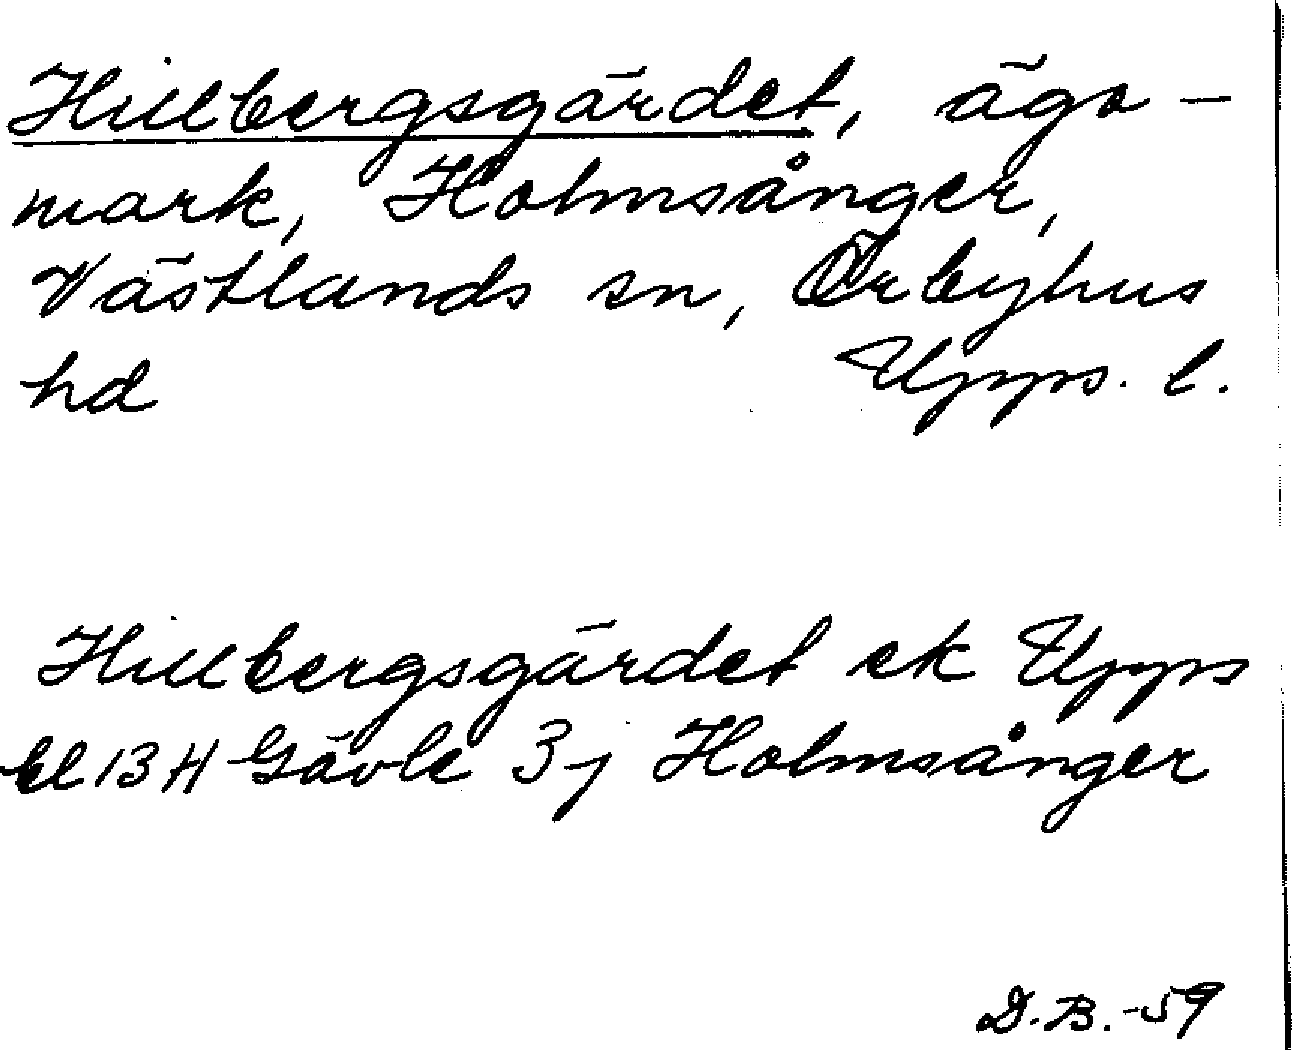 Hillbergsgärdet, ägo-
mark, Holmsånger,
Västlands sn, Örbyhus
hd Upps. l.
Hillbergsgärdet ek Upps
bl 13 H Gävle 3j Holmsånger
D.B.-59